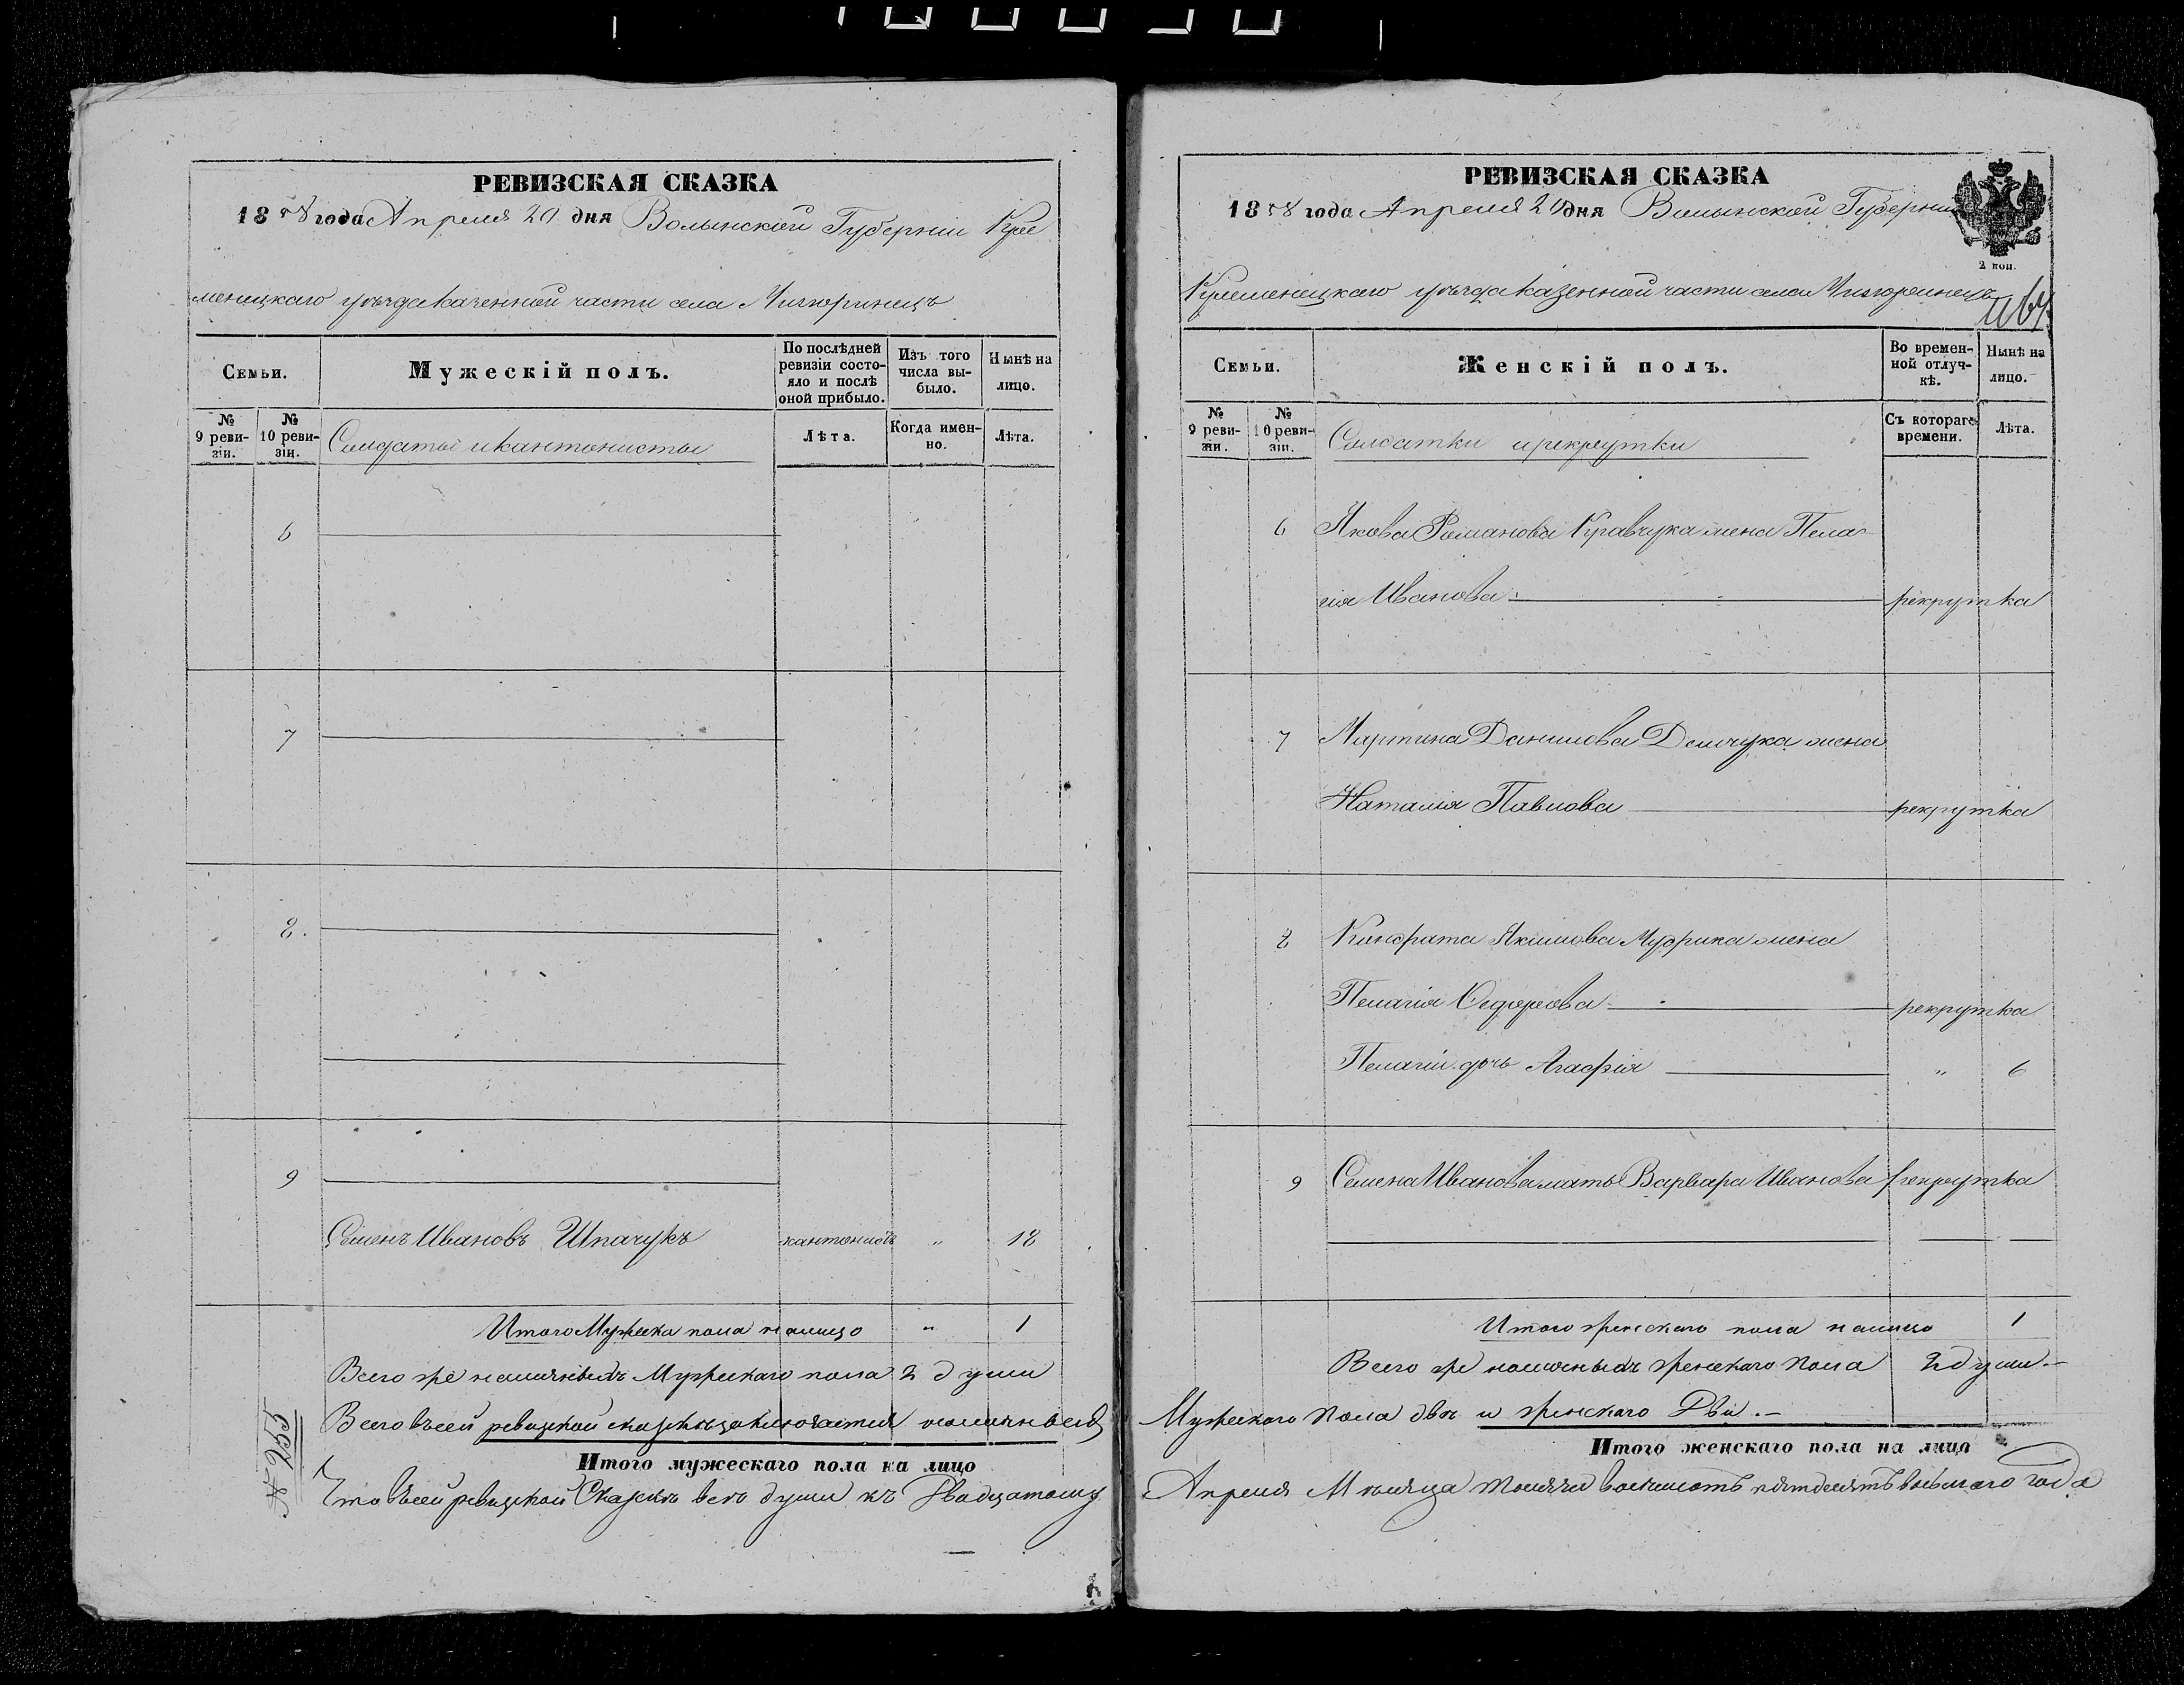 РЕВИЗСКАЯ СКАЗКА
1858 года Апреля 20 дня Волынской Губернии Кре
менецкаго уѣзда казенной части села
Семьи.
Мужескій полъ.
По послѣдней ревизіи состояло и послѣ оной прибыло.
Изъ того числа выбыло.
Нынѣ на лицо.
№ 9 ревизіи.
№ 10 ревизіи.
Солдаты и кантонисты
Лѣта.
Когда именно.
Лѣта.
6
7
8.
9
Семенъ Ивановъ Шпачукъ кантонистъ " 18
Итого Мужеска пола налицо " 1
Всего же наличныхъ Мужескаго пола 2 души
Всего въ сей ревизской сказкѣ заключается наличныхъ
Итого мужескаго пола на лицо
Что въ сей ревизской Сказкѣ всѣ души къ Двадцатому
№ 255
РЕВИЗСКАЯ СКАЗКА
1858 года Апреля 20 дня Волынской Губернии
2 коп.
Кременецкаго уѣзда казенной части села
Семьи.
Женскій полъ.
Во временной отлучкѣ.
Нынѣ на лицо.
№ 9 ревизіи.
№ 10 ревизіи.
Солдатки и рекрутки
Съ котораго времени.
Лѣта.
6 Якова Романова Кравчука жена Пела
гія Иванова рекрутка
7 Мартина Данилова Демчука жена
Наталія Павлова рекрутка
8 Кондрата Якимова Мудрика жена
Пелагія Федорова рекрутка
Пелагіи дочь Агафія " 6
9 Семена Иванова мать Варвара Иванова рекрутка
Итого женскаго пола налицо 1
Всего же наличныхъ женскаго пола 2 души.
Мужескаго пола двѣ и женскаго Двѣ.
Итого женскаго пола на лицо
Апреля Мѣсяца тысяча восемьсотъ пятдесятъ восьмаго года